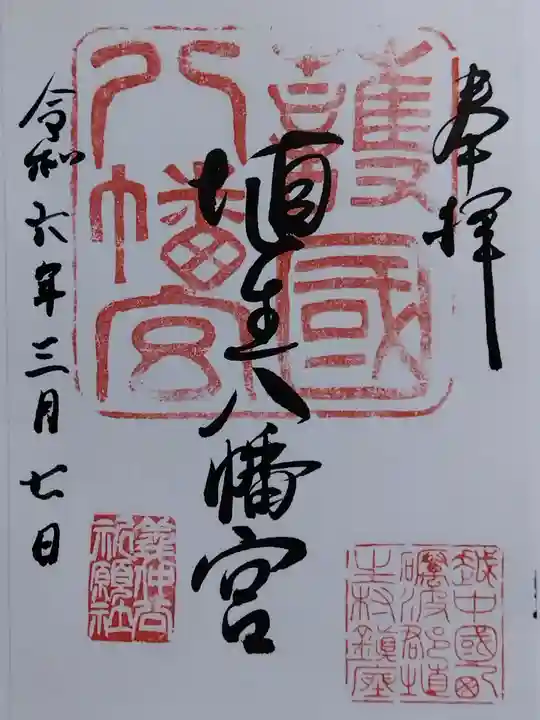 奉拝
護國
八幡宮
埴生八幡宮
令和六年三月七日
越中國
礪波郡埴
生村鎮座
祈願社